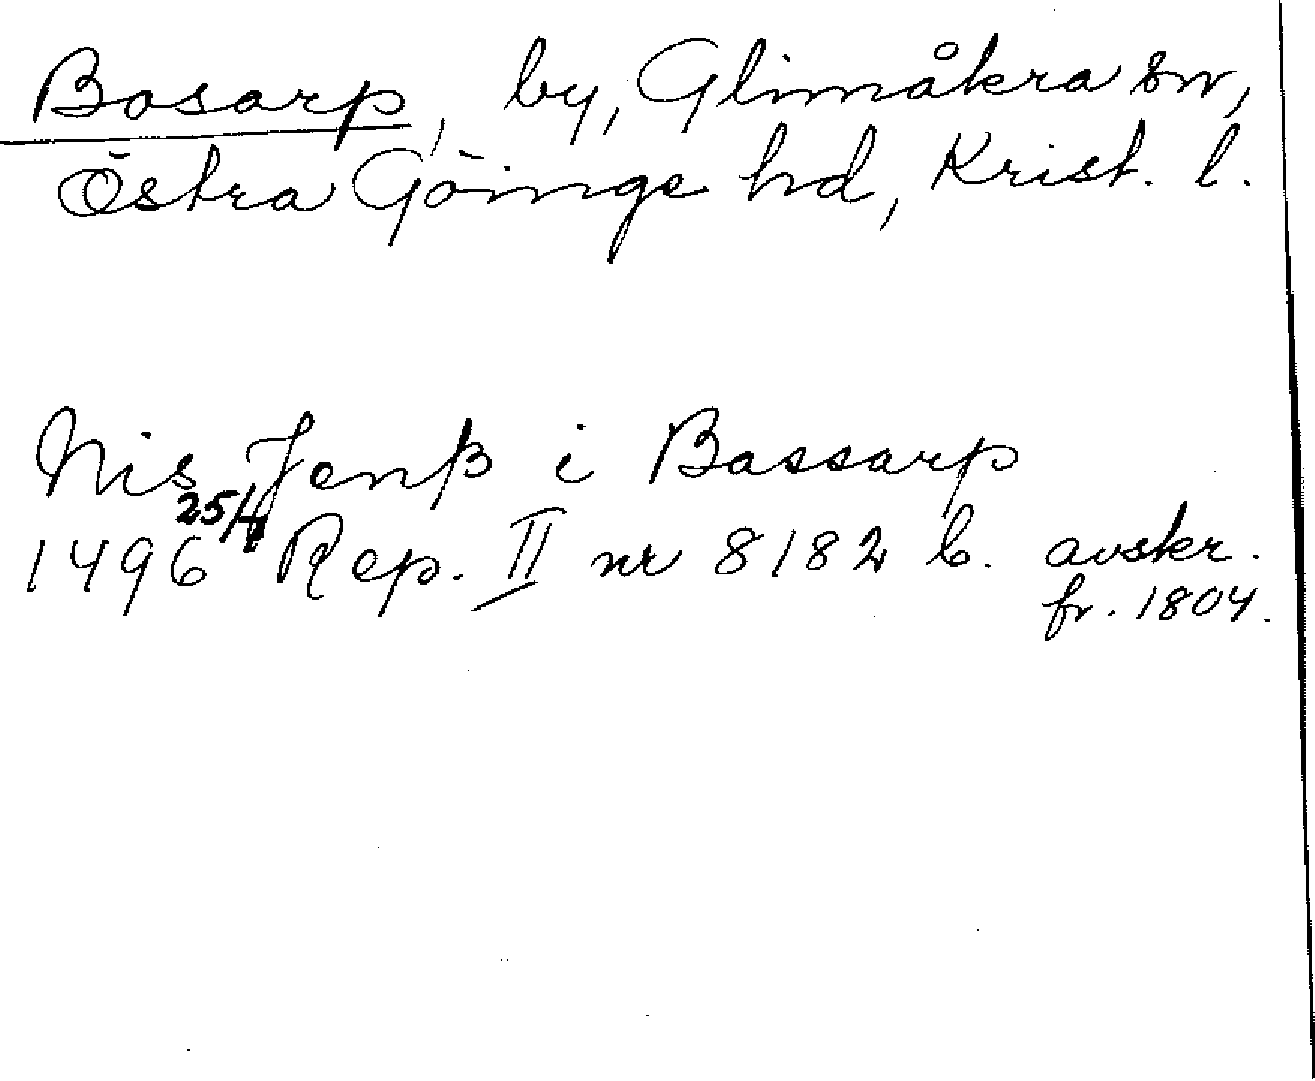 Bosarp, by, Glimåkra sn,
Östra Göinge hd, Krist. l.
Nis Jenß i Bassarp
1496 25/4 Rep. II nr 8182 b. avskr.
fr. 1804.